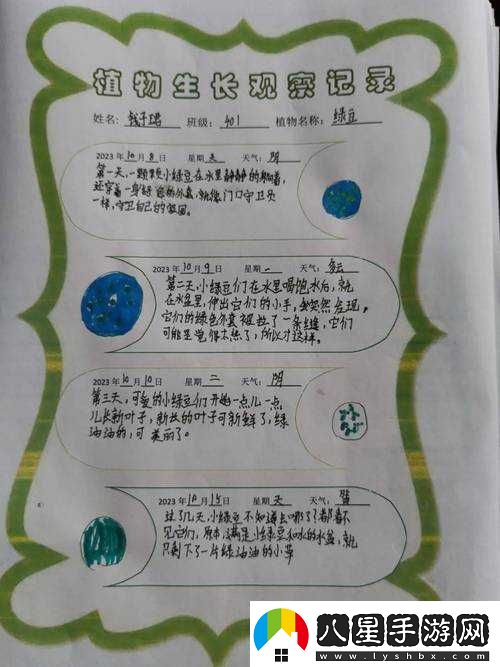 植物生长观察记录
姓名： 钱子珺 班级： 401 植物名称： 绿豆
2023年10月8日 星期天 天气：阴
第一天，一颗颗小绿豆在水里静静的躺着，
还穿着一身绿色的外套，就像门口守卫员
一样，守卫自己的家园。
2023年10月9日 星期一 天气：多云
第二天，小绿豆们在水里喝饱水后，就
在水盆里，伸出它们的小手，我突然发现，
它们的绿色外套被拉了一条缝，它们
可能是觉得太热了，所以才这样。
2023年10月10日 星期二 天气：阴
第三天，可爱的小绿豆们开始一点儿一点
儿长新叶子，新长的叶子可新鲜了，绿
油油的，可美丽了。
2023年10月15日 星期天 天气：
过了几天，小绿豆不知道去哪了？都看不
见它们，原本满是小绿豆和水的水盆，就
只剩下了一片绿油油的小草
八星手游网
www.lyshbx.com